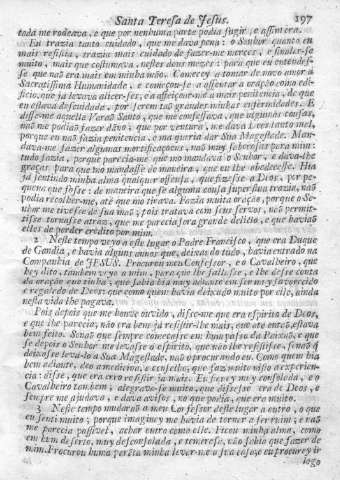 Santa Teresa de Jesus. 197
toda me rodeava, e que por nenhuma parte podia fugir, e assim era.
Eu trazia tanto cuidado, que me dava pena: o Senhor quanto eu
mais resistia, trazia mais cuidado de fazer-me merces, e sinalar-se
muito, mais que costumava, nestes dous mezes: para que eu entendes-
se que naõ era mais em minha maõ. Comecey a tomar de novo amor à
Sacratissima Humanidade, e começou-se a assentar a oraçaõ como edi-
ficio, que ja levava alicerses, e a affeiçoar-me a mais penitencia, de que
eu estava descuidada, por serem taõ grandes minhas enfermidades. E
disse-me aquelle Varaõ Santo, que me confessava, que algumas cousas,
naõ me podiaõ fazer dano: que por ventura, me dava Deos tanto mal,
porque eu naõ fazia penitencia, e ma queria dar Sua Magestade. Man-
dava-me fazer algumas mortificaçoens, naõ muy saborosas para mim:
tudo fazia, porque parecia-me que mo mandava o Senhor, e dava-lhe
graças para que mo mandasse de maneira, que eu lhe obedecesse. Hia
ja sentindo minha alma qualquer offensa, que fizesse a Deos, por pe-
quena que fosse: de maneira que se alguma cousa superflua trazia, naõ
podia recolher-me, até que mo tirava. Fazia muita oraçaõ, porque o Se-
nhor me tivesse de sua maõ; pois tratava com seus servos, naõ permit-
tisse tornasse atraz, que me parecia fora grande delicto, e que haviaõ
elles de perder credito por mim.
2 Neste tempo veyo a este lugar o Padre Francisco, que era Duque
de Gandia, e havia alguns annos que, deixado tudo, havia entrado na
Companhia de JESUS. Procurou meu Confessor, e o Cavalheiro, que
hey dito, tambem veyo a mim, para que lhe fallasse, e lhe desse conta
da oraçaõ que tinha; que sabia hia muy adiante em ser muy favorecido
e regalado de Deos: que como quem havia deixado muito por elle, ainda
nesta vida lhe pagava.
Pois depois que me houve ouvido, disse-me que era espirito de Deos,
e que lhe parecia, não era bem ja resistir-lhe mais, que até entaõ estava
bem feito. Senaõ que sempre começasse em hum passo da Paixaõ, e que
se depois o Senhor me levasse o espirito, que não lhe resistisse, senaõ q
deixasse leva-lo a Sua Magestade, naõ o procurando eu. Como quem hia
bem adiante, deo a medicina, e conselho, que faz muito nisto a experien-
cia: disse, que era erro resistir ja mais. Eu fiquey muy consolada, e o
Cavalheiro tambem; alegrava-se muito, que dissesse era de Deos, e
sempre me ajudava, e dava avisos, no que podia, que era muito.
3 Neste tempo mudaraõ a meu Confessor deste lugar a outro, o que
eu senti muito; porque imaginey me havia de tornar a ser ruim, e naõ
me parecia possivel, achar outro como elle. Ficou minha alma, como
em hum deserto, muy desconsolada, e temerosa, não sabia que fazer de
mim. Procurou huma parenta minha levar-me a sua casa, e eu procurey ir
logo